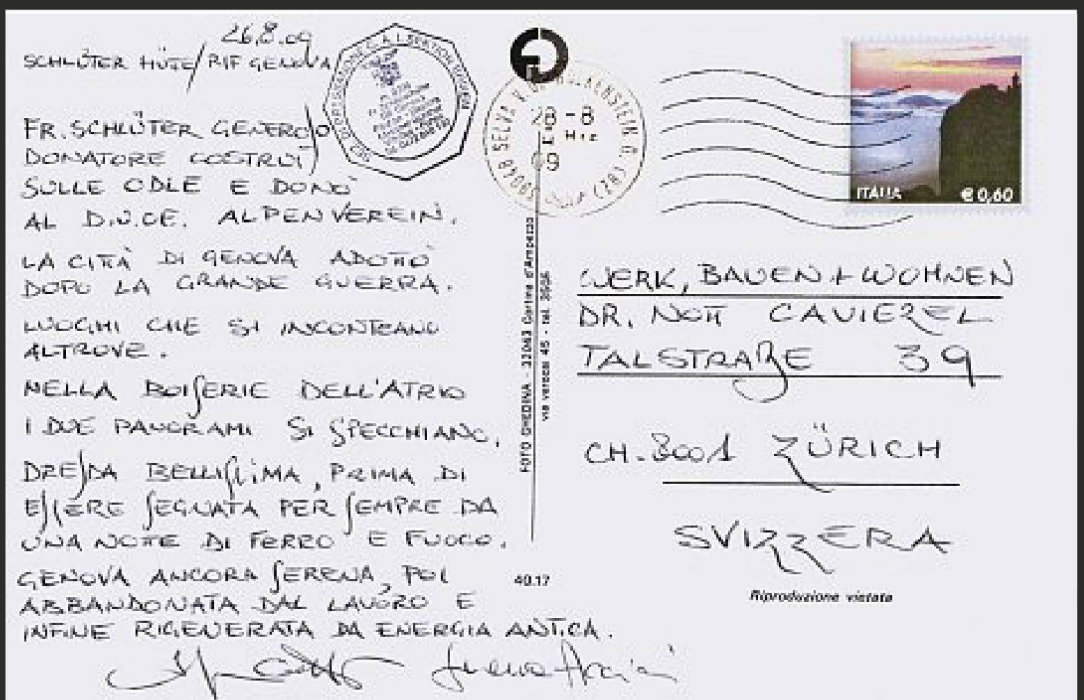 26.8.09
SCHLÜTER HÜTE/RIF GENOVA
FR. SCHLÜTER GENEROSO
DONATORE COSTRUÌ
SULLE ODLE E DONÒ
AL D.U.OE. ALPENVEREIN.
LA CITTÀ DI GENOVA ADOTTÒ
DOPO LA GRANDE GUERRA.
LUOGHI CHE SI INCONTRANO
ALTROVE.
NELLA BOISERIE DELL'ATRIO
I DUE PANORAMI SI SPECCHIANO.
DRESDA BELLISSIMA, PRIMA DI
ESSERE SEGNATA PER SEMPRE DA
UNA NOTTE DI FERRO E FUOCO.
GENOVA ANCORA SERENA, POI
ABBANDONATA DAL LAVORO E
INFINE RIGENERATA DA ENERGIA ANTICA.
C.A.I.
39048 SELVA
28-8
09
(BZ)
FOTO GHEDINA - 32043 Cortina d'Ampezzo
40.17
ITALIA € 0,60
WERK, BAUEN + WOHNEN
DR. NOTT CAVIEZEL
TALSTRAßE 39
CH-8001 ZÜRICH
SVIZZERA
Riproduzione vietata